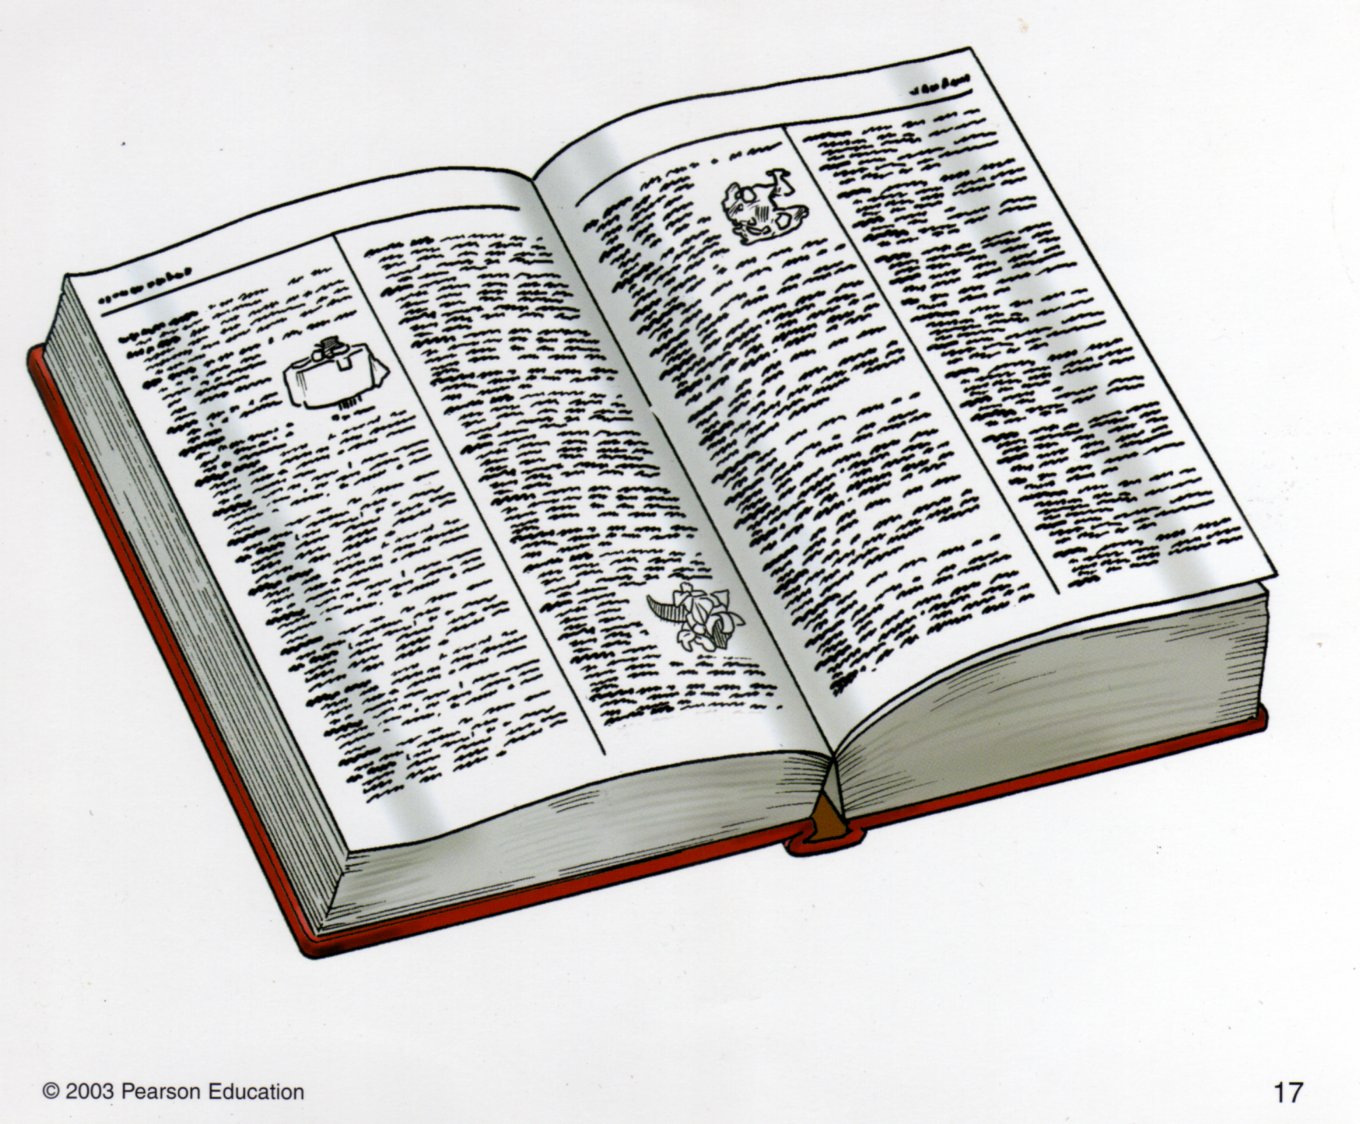 © 2003 Pearson Education
17